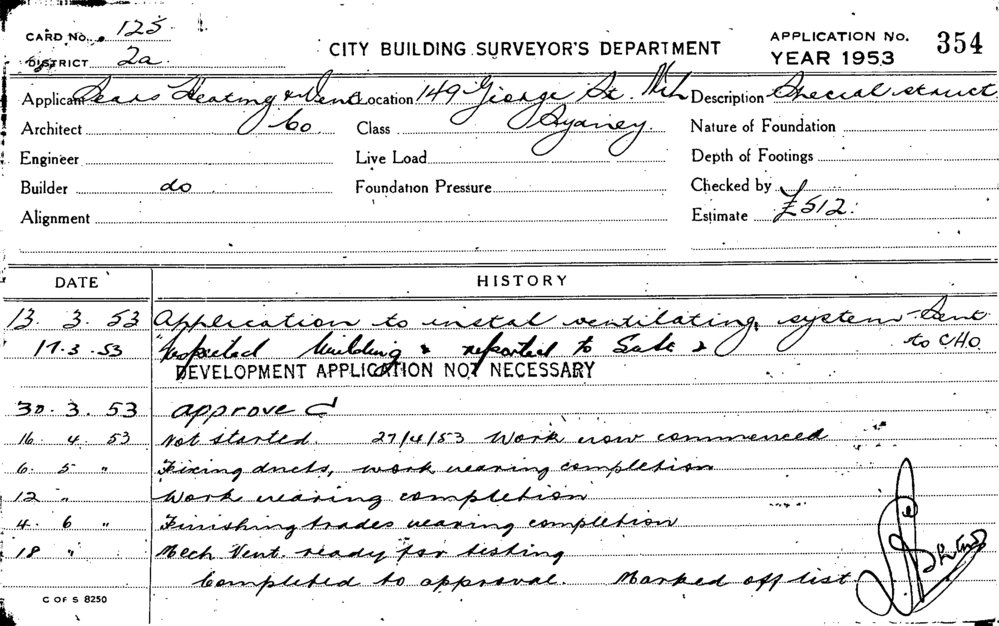 CARD No. 125.
DISTRICT 2a.
CITY BUILDING SURVEYOR'S DEPARTMENT
APPLICATION No. 354
YEAR 1953
Applicant Sears Heating & Vent Co. Location 149 George St. Nth Sydney. Description Special struct
Architect Class Nature of Foundation
Engineer Live Load Depth of Footings
Builder do Foundation Pressure Checked by
Alignment Estimate £512:
DATE HISTORY
13. 3. 53 Application to instal ventilating system - Sent to CHO.
17.3.53 Inspected building & reported to
DEVELOPMENT APPLICATION NOT NECESSARY
30. 3. 53 approved
16. 4. 53 Not started. 27/4/53 Work now commenced
6. 5 " Fixing ducts, work nearing completion
12 " Work nearing completion
4. 6 " Finishing trades nearing completion
18 " Mech Vent. ready for testing
Completed to approval. Marked off list
C OF S 8250